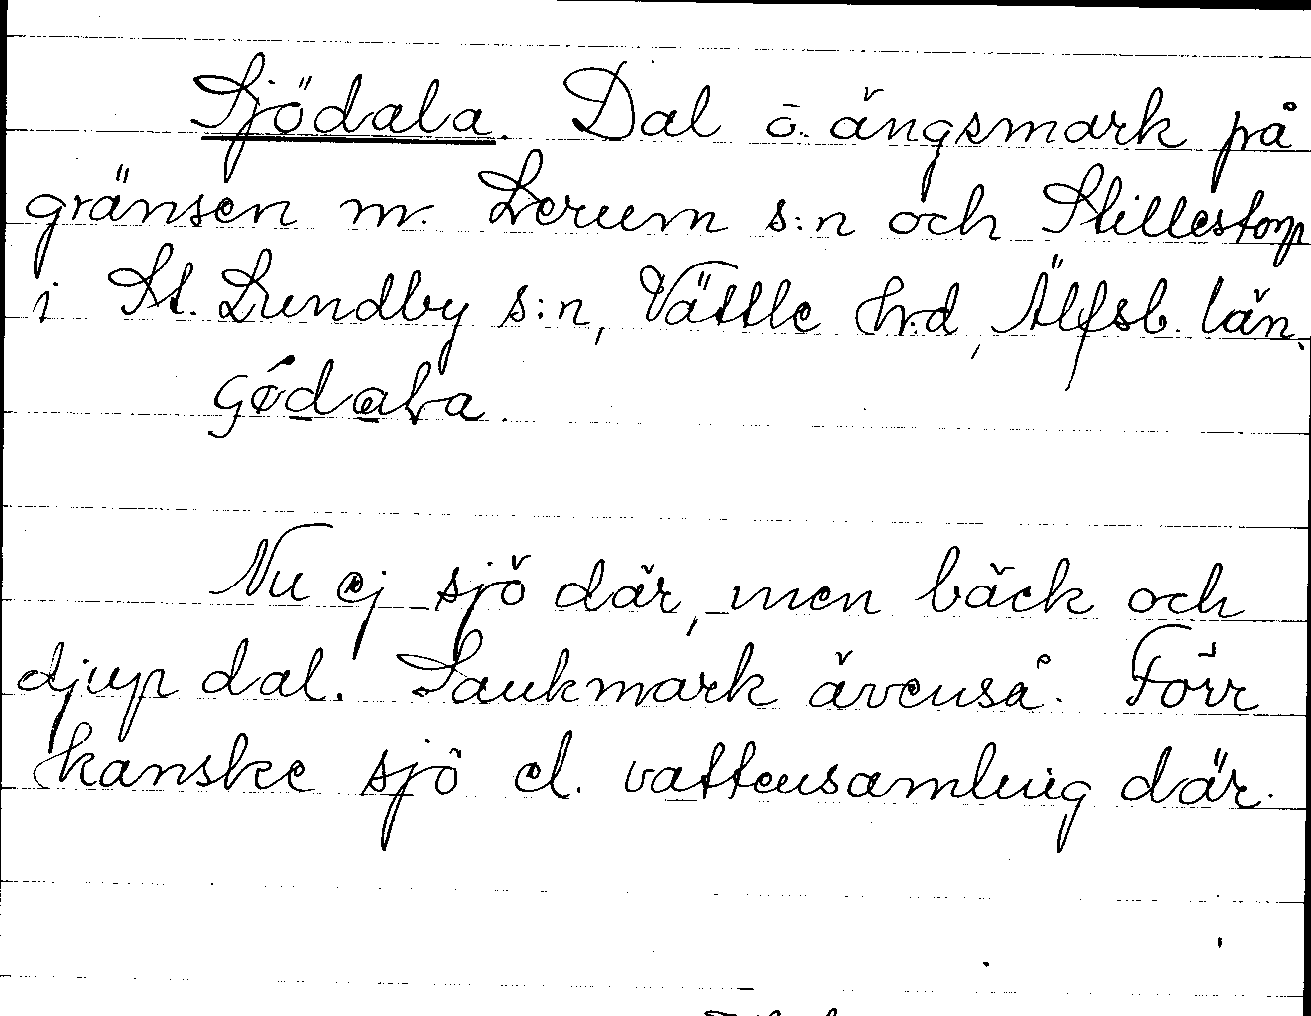 Sjödala. Dal o. ängsmark på
gränsen m. Lerum s:n och Stillestorp
i St. Lundby s:n, Vättle hrd, Älfsb. län.
Nu ej sjö där, men bäck och
djup dal. Sankmark ävenså. Förr
kanske sjö el. vattensamling där.